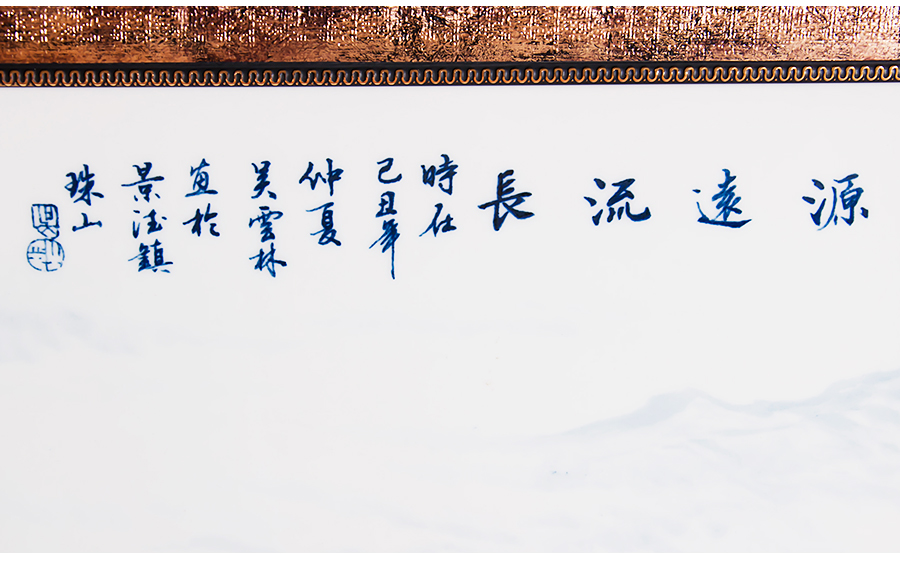 源遠流長
時在
己丑年
仲夏
吴雲林
畫於
景德鎮
珠山